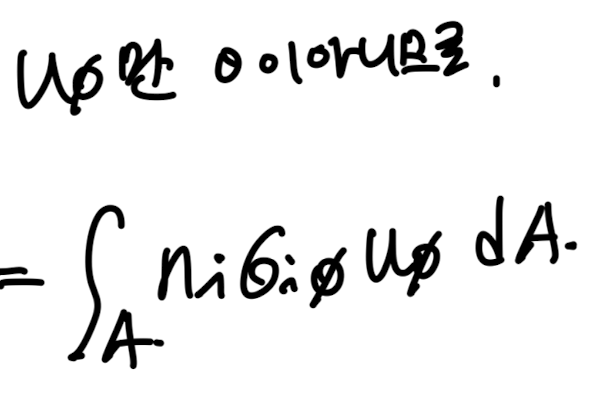 u∅만 0이아니므로.
= ∫_A n_i σ_i∅ u∅ dA.